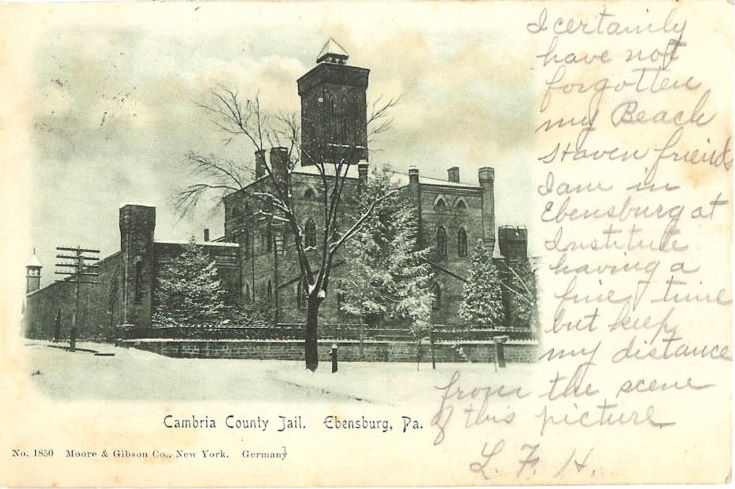 I certainly
have not
forgotten
my Beach
Haven friends
I am in
Ebensburg at
Institute
having a
fine time
but keep
my distance
from the scene
of this picture
L. F. H.
Cambria County Jail. Ebensburg, Pa.
No. 1850 Moore & Gibson Co., New York. Germany